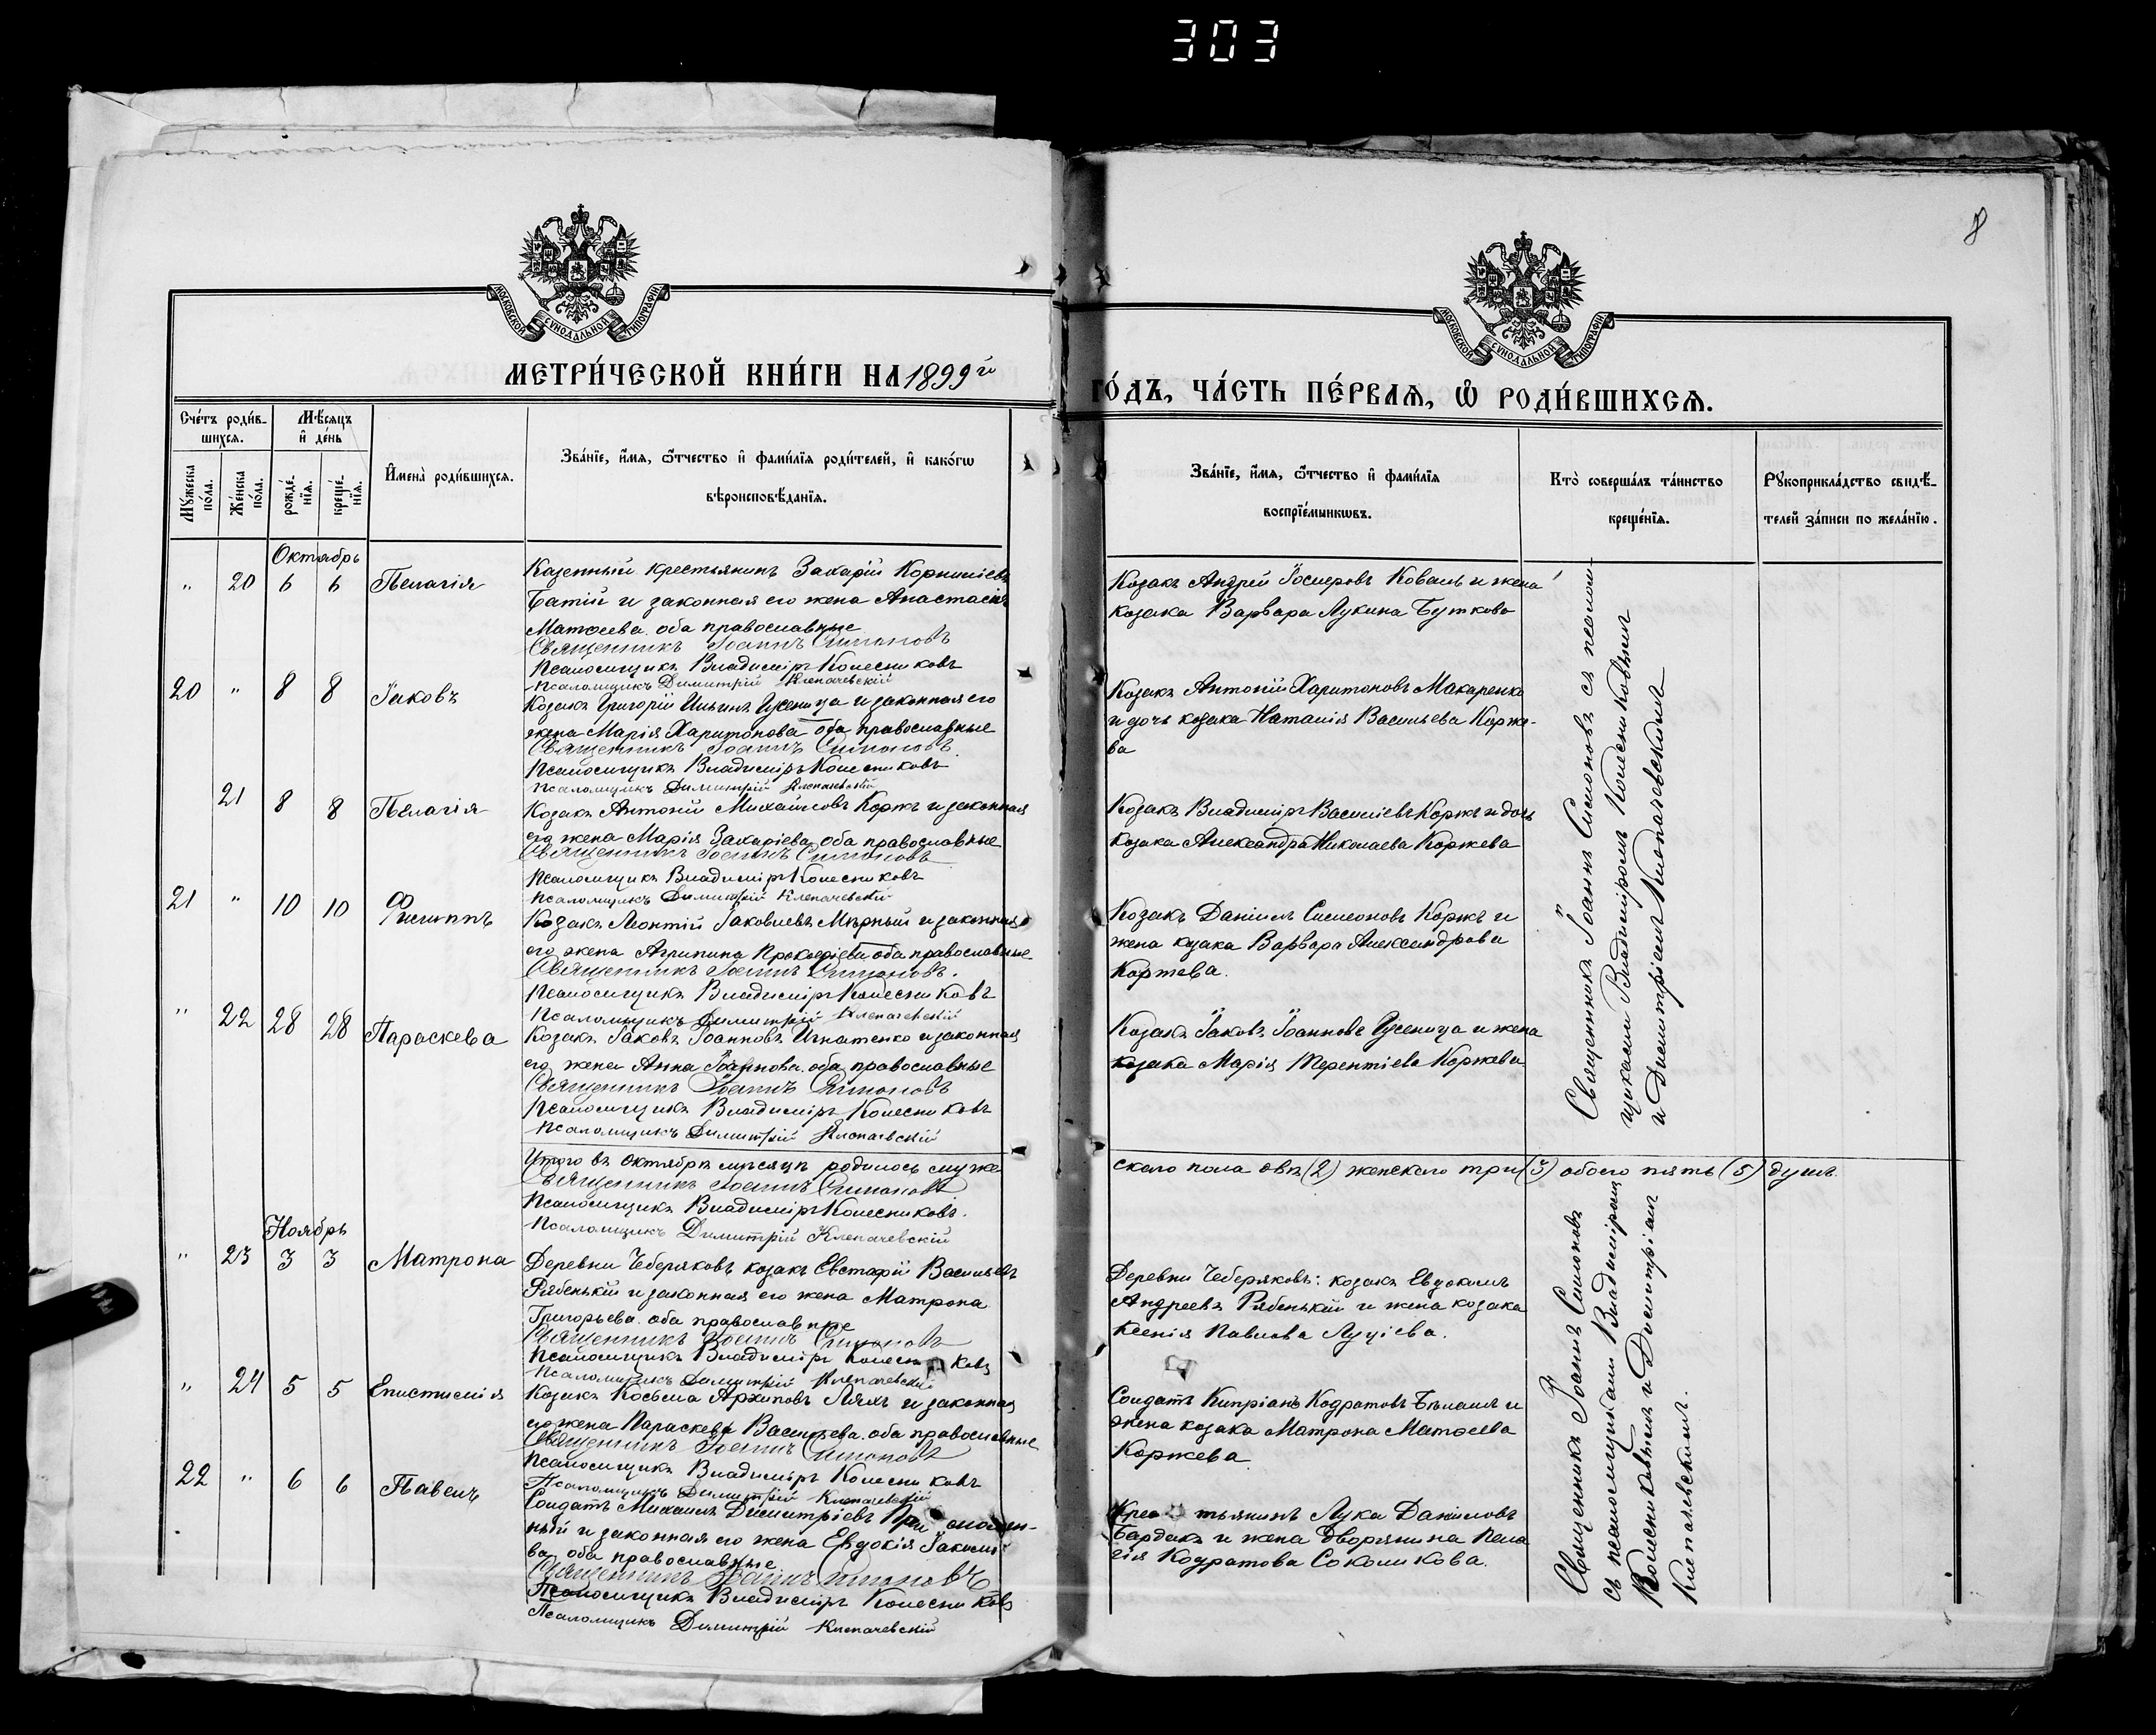 303
8
МОСКОВСКОЙ СУНОДАЛЬНОЙ ТИПОГРАФІИ
МОСКОВСКОЙ СУНОДАЛЬНОЙ ТИПОГРАФІИ
МЕТРИ́ЧЕСКОЙ КНИ́ГИ НА 1899й
ГО́ДЪ, ЧА́СТЬ ПЕ́РВАѦ, Ѽ РОДИ́ВШИХСѦ.
Сче́тъ роди́в-
шихсѧ.
Мѣ́сѧцъ
и҆ де́нь
Мꙋ́жеска по́ла.
Же́нска по́ла.
рожде́-
нїѧ.
креще́-
нїѧ.
И҆мена̀ роди́вшихсѧ.
Зва́нїе, и҆́мѧ, ѻ҆́тчество и҆ фами́лїѧ роди́телей, и҆ како́гѡ
вѣроисповѣ́данїѧ.
Зва́нїе, и҆́мѧ, ѻ҆́тчество и҆ фами́лїѧ
воспрїе́мникѡвъ.
Кто̀ соверша́лъ та́инство
креще́нїѧ.
Рꙋкоприкла́дство свидѣ́-
телей за́писи по жела́нїю.
Октябрь
" 20 6 6 Пелагія
Казенный крестьянинъ Захарій Корниліевъ
Батій и законная его жена Анастасія
Матѳеева. оба православные
Священникъ Іоаннъ Симоновъ
Псаломщикъ Владиміръ Колесниковъ
Псаломщикъ Димитрій Клепачевскій
Козакъ Андрей Іосифовъ Коваль и жена
козака Варвара Лукина Буткова
20 " 8 8 Іаковъ
Козакъ Григорій Ильинъ Гусеница и законная его
жена Марія Харитонова оба православные
Священникъ Іоаннъ Симоновъ.
Псаломщикъ Владиміръ Колесниковъ
Псаломщикъ Димитрій Клепачевскій
Козакъ Антоній Харитоновъ Макаренко
и дочь козака Наталія Васильева Корже-
ва
21 8 8 Пелагія
Козакъ Антоній Михайловъ Коржъ и законная
его жена Марія Захаріева оба православные
Священникъ Іоаннъ Симоновъ
Псаломщикъ Владиміръ Колесниковъ
Псаломщикъ Димитрій Клепачевскій
Козакъ Владиміръ Василіевъ Коржъ и дочь
козака Александра Николаева Коржева
21 " 10 10 Филиппъ
Козакъ Леонтій Іаковлевъ Мѣрный и законная
его жена Агрипина Прокофіева оба православные
Священникъ Іоаннъ Симоновъ.
Псаломщикъ Владиміръ Колесниковъ
Псаломщикъ Димитрій Клепачевскій
Козакъ Даніилъ Симеоновъ Коржъ и
жена козака Варвара Александрова
Коржева.
" 22 28 28 Параскева
Козакъ Іаковъ Іоанновъ Игнатенко и законная
его жена Анна Іоаннова. оба православные
Священникъ Іоаннъ Симоновъ
Псаломщикъ Владиміръ Колесниковъ
Псаломщикъ Димитрій Клепачевскій
Козакъ Іаковъ Іоанновъ Гусеница и жена
козака Марія Терентіева Коржева
Священникъ Іоаннъ Симоновъ съ псалом-
щиками Владиміромъ Колесниковымъ
и Димитріемъ Клепачевскимъ
Итого въ Октябрѣ мѣсяцѣ родилось муже-
ского пола два (2) женскаго три (3) обоего пять (5) душъ.
Священникъ Іоаннъ Симоновъ
Псаломщикъ Владиміръ Колесниковъ.
Псаломщикъ Димитрій Клепачевскій
Ноябрь
" 23 3 3 Матрона
Деревни Чеберяковъ козакъ Евстафій Васильевъ
Рябенькій и законная его жена Матрона
Григорьева. оба православные
Священникъ Іоаннъ Симоновъ
Псаломщикъ Владиміръ Колесниковъ
Псаломщикъ Димитрій Клепачевскій
Деревни Чеберяковъ: козакъ Евдокимъ
Андреевъ Рябенькій и жена козака
Ксенія Павлова Луціева.
" 24 5 5 Епистимія
Козакъ Косьма Архиповъ Ляхъ и законная
его жена Параскева Васильева. оба православные
Священникъ Іоаннъ Симоновъ
Псаломщикъ Владиміръ Колесниковъ
Псаломщикъ Димитрій Клепачевскій
Солдатъ Кипріанъ Кодратовъ Бѣлашъ и
жена козака Матрона Матѳеева
Коржева
22 " 6 6 Павелъ
Солдатъ Михаилъ Димитріевъ
ный и законная его жена Евдокія Іакимо-
ва оба православные
Священникъ Іоаннъ Симоновъ
Псаломщикъ Владиміръ Колесниковъ
Псаломщикъ Димитрій Клепачевскій
Крестьянинъ Лука Даниловъ
Бардакъ и жена дворянина Пела
гія Кодратова Соколикова.
Священникъ Іоаннъ Симоновъ
съ псаломщиками Владиміромъ
Колесниковымъ и Димитріемъ
Клепачевскимъ.